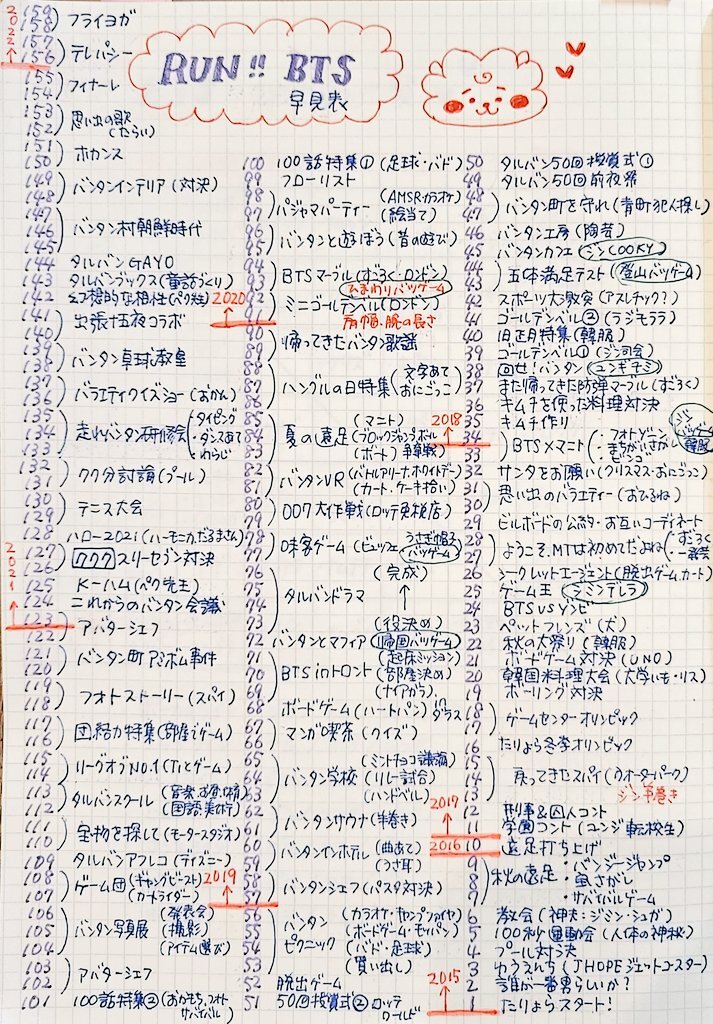 RUN!! BTS
早見表
2022↑
159
158 フライヨガ
157
156 テレパシー
155
154 フィナーレ
153
152 思い出の歌(たらい)
151
150 ホカンス
149
148 バンタンインテリア (対決)
147
146
145 バンタン村朝鮮時代
144 タルバン GAYO
143 タルバンブックス(童話づくり)
142 幻想的な相性(パク社)
141
140 出張十五夜コラボ
139
138 バンタン卓球教室
137
136 バラエティクイズショー(おかん)
135
134
133 走れバンタン研修会(・タイピング ・ダンスあて ・わらじ
132
131 77分討論(プール)
130
129 テニス大会
128 ハロー2021(ハーモニカ,だるまさん)
2021↑
127
126 777 スリーセブン対決
125 K-ハム(ペク先生)
124 これからのバンタン会議
123
122 アバターシェフ
121
120 バンタン町アミボム事件
119
118 フォトストーリー(スパイ)
117
116 団結力特集(部屋でゲーム)
115
114 リーグオブNO.1(T1とゲーム)
113
112 タルバンスクール(音楽・お昼・体育)(国語・美術)
111
110 宝物を探して(モータースタジオ)
109 タルバンアフレコ(ディズニー)
108
107 ゲーム団(ギャングビースト)(カートライダー)
106
105
104 バンタン写真展 (発表会)(撮影)(アイテム選び)
103
102 アバターシェフ
101 100話特集②(おかもち,フォトサバイバル)
100 100話特集①(足球・バド)
99 フローリスト
98
97 パジャマパーティー(AMSR・カラオケ)(絵当て)
96
95 バンタンと遊ぼう(昔の遊び)
94
93 BTSマーブル(すごろく・ロンドン) ひまわりバツゲーム
2020↑
92
91 ミニゴールデンベル(ロンドン)
肩幅・腕の長さ
90
89 帰ってきたバンタン歌謡
88
87
86 ハングルの日特集(文字あて おにごっこ
85
84
83 夏の遠足(マニト)(ブロックジャンプ,ボール)(ボート)争奪戦
82
81 バンタンVR(バトルアリーナ,ホワイトデー)(カート・ケーキ拾い)
80
79 007大作戦(ロッテ免税店)
78
77 味客ゲーム(ビュッフェ うさぎ帽子バツゲーム
76
75
74
73 タルバンドラマ (完成)↑(役決め)
72 バンタンとマフィア 帰国バツゲーム
71
70
69 BTS in トロント(起床ミッション)(部屋決め)(ナイアガラ)
68 ボードゲーム(ハートパン)ダラス
67
66 マンガ喫茶(クイズ)
65
64
63 バンタン学校(ミントチョコ議論)(リレー試合)(ハンドベル)
62
61 バンタンサウナ(羊巻き)
60
59 バンタンインホテル(曲あて)(うさ耳)
2019↑
58
57 バンタンシェフ(パスタ対決)
56
55
54
53 バンタンピクニック(カラオケ・キャンプファイヤ)(ボードゲーム・モッパン)(バド・足球)(買い出し)
52 脱出ゲーム
51 50回授賞式②ロッテワールド
50 タルバン50回授賞式①
49 タルバン50回前夜祭
48
47 バンタン町を守れ(青町犯人探し)
46 バンタン工房(陶芸)
45 バンタンカフェ ジンCOOKY
44
43 五体満足テスト 登山バツゲーム
42 スポーツ大教室(アスレチック?)
41 ゴールデンベル②(ラジモララ)
40 旧正月特集(韓服)
39 ゴールデンベル①(ジン司会)
38 回せ!バンタン ユンギチミ
37 また帰ってきた防弾マーブル(すごろく)
36 キムチを使った料理対決
35 キムチ作り
2018↑
34
33 BTS×マニト(・フォトゾーン ・まちがいさがし ・ビンゴ ジンバツゲーム韓服
32 サンタをお願い(クリスマス・おにごっこ)
31
30 思い出のバラエティー(おひるね)
29 ビルボードの公約・お互いコーディネート
28
27 ようこそ、MTは初めてだよね(・すごろく ・一発芸
26 シークレットエージェント(脱出ゲーム,カート)
25 ゲーム王 シンデレラ
24 BTS VS ゾンビ
23 ペットフレンズ(犬)
22 秋の大祭り(韓服)
21 ボードゲーム対決(UNO)
20 韓国料理大会(大学いも・リス)
19 ボーリング対決
18
17 ゲームセンターオリンピック
16 たりょら冬季オリンピック
15
14
13 戻ってきたスパイ(ウォーターパーク)
ジン手巻き
2017↑
12 刑事&囚人コント
11 学園コント(ユンジ転校生)
2016
10 遠足打ち上げ
9
8
7 秋の遠足・バンジージャンプ ・宝さがし ・サバイバルゲーム
6 教会(神父:ジミン・シュガ)
5 100秒運動会(人体の神秘)
4 プール対決
3 ゆうえんち(JHOPEジェットコースター)
2 誰が一番男らしいか?
2015↑
1 たりょらスタート!